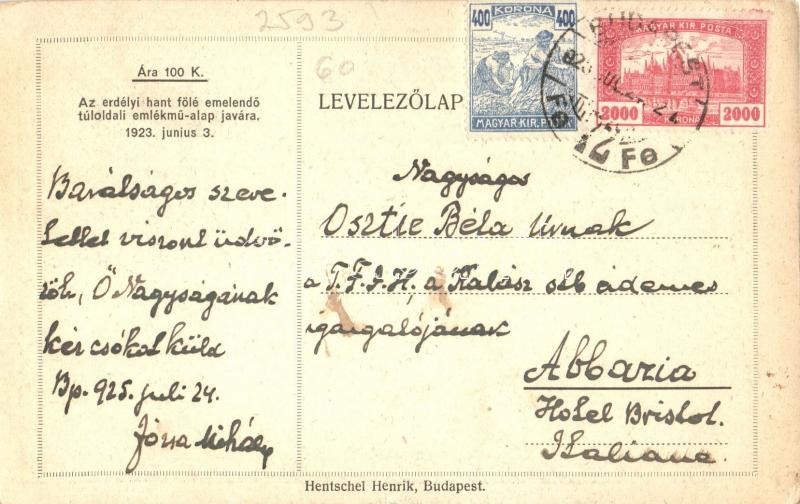 2593
60
Ára 100 K.
Az erdélyi hant fölé emelendő
túloldali emlékmű-alap javára.
1923. junius 3.
LEVELEZŐLAP
400 KORONA 400
MAGYAR KIR. POSTA
MAGYAR KIR. POSTA
2000 KORONA 2000
BUDAPEST
Barátságos szere-
tettel viszont üdvö-
zöl, Ő Nagyságának
kézcsókot küld
Bp. 925. juli 24.
Józsa Mihály
Nagyságos
Osztie Béla Úrnak
a T.F.I.H. a Kalász
igazgatójának
Abbazia
Hotel Bristol.
Italiana
Hentschel Henrik, Budapest.